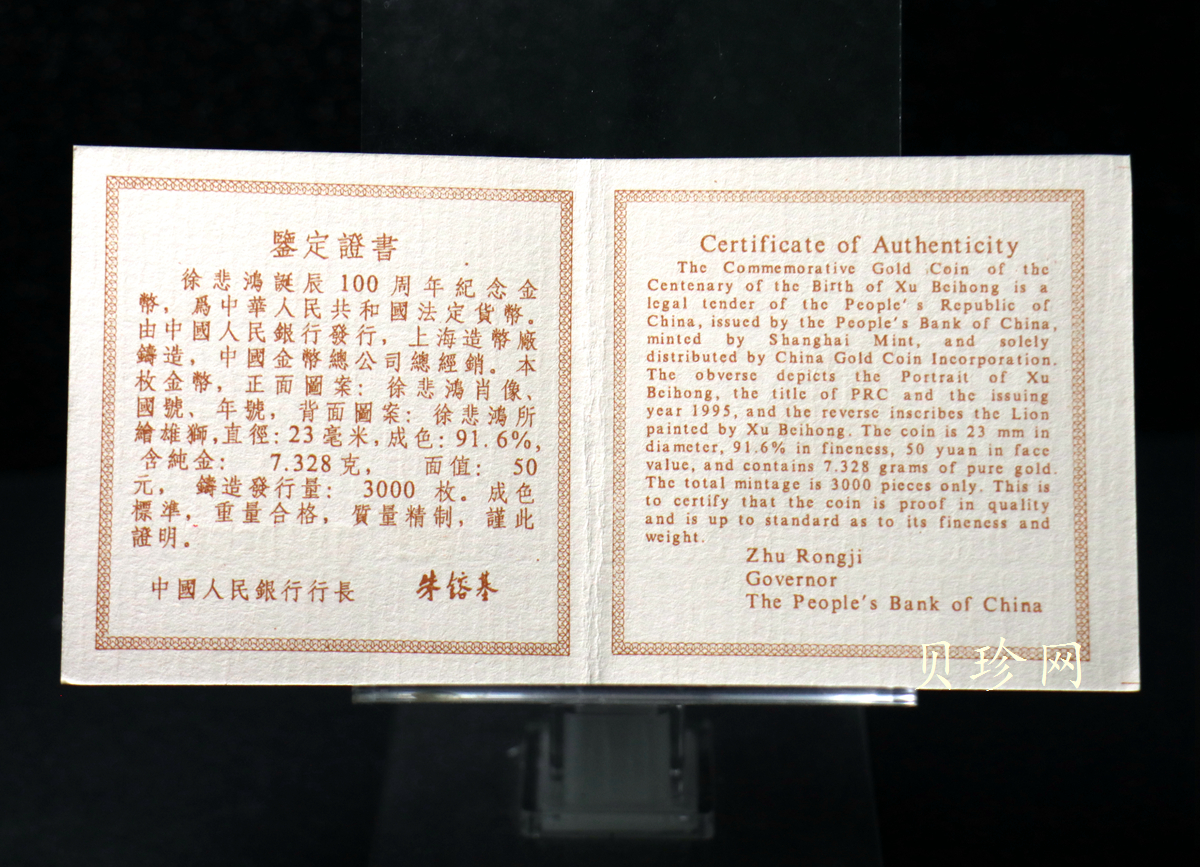 鑒定證書
徐悲鴻誕辰100周年紀念金
幣，爲中華人民共和國法定貨幣。
由中國人民銀行發行，上海造幣廠
鑄造，中國金幣總公司總經銷。本
枚金幣，正面圖案：徐悲鴻肖像、
國號、年號，背面圖案：徐悲鴻所
繪雄獅，直徑：23毫米，成色：91.6%，
含純金： 7.328克， 面值： 50
元， 鑄造發行量： 3000 枚。成色
標準，重量合格，質量精制，謹此
證明。
中國人民銀行行長 朱鎔基
Certificate of Authenticity
The Commemorative Gold Coin of the
Centenary of the Birth of Xu Beihong is a
legal tender of the People's Republic of
China, issued by the People's Bank of China,
minted by Shanghai Mint, and solely
distributed by China Gold Coin Incorporation.
The obverse depicts the Portrait of Xu
Beihong, the title of PRC and the issuing
year 1995, and the reverse inscribes the Lion
painted by Xu Beihong. The coin is 23 mm in
diameter, 91.6% in fineness, 50 yuan in face
value, and contains 7.328 grams of pure gold.
The total mintage is 3000 pieces only. This is
to certify that the coin is proof in quality
and is up to standard as to its fineness and
weight.
Zhu Rongji
Governor
The People's Bank of China
贝珍网